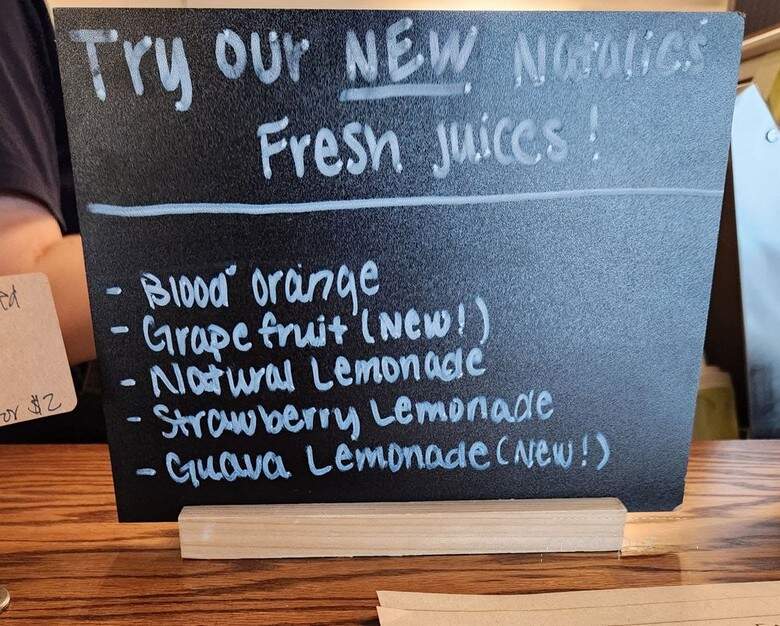 Try our NEW Natalie's
Fresh Juices!
- Blood orange
- Grapefruit (New!)
- Natural Lemonade
- Strawberry Lemonade
- Guava Lemonade (New!)
or $2